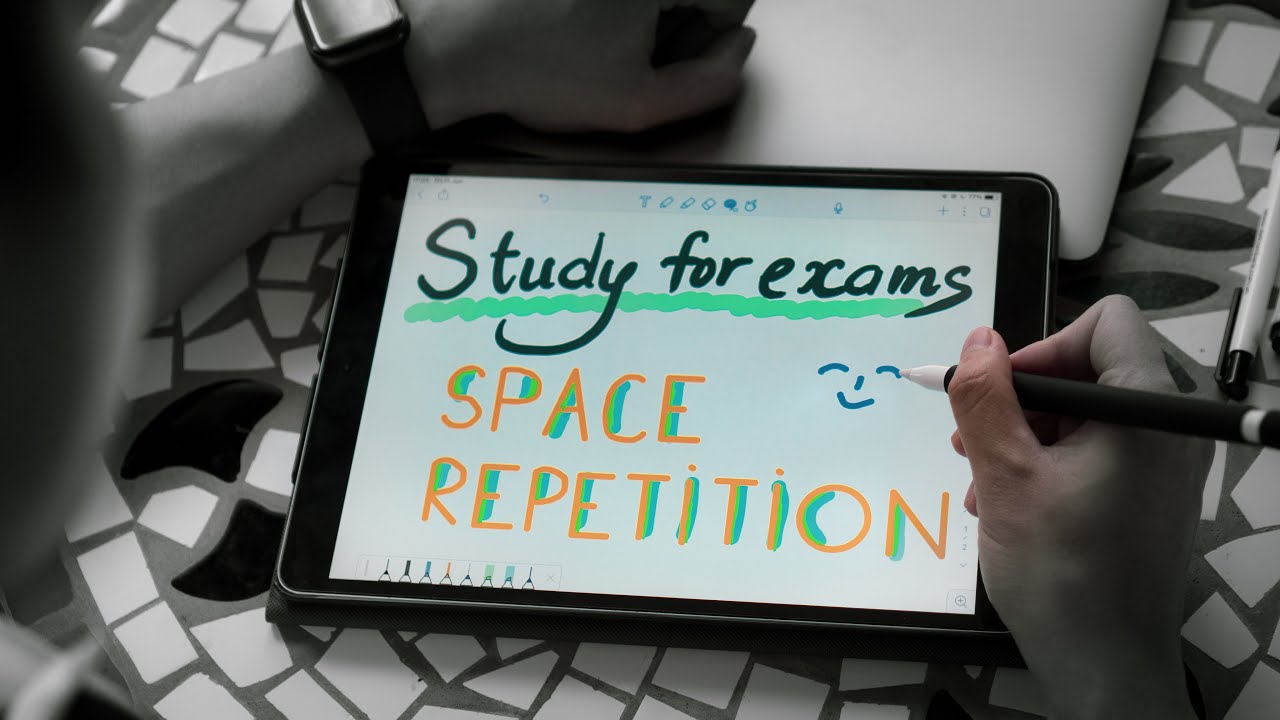 Study for exams
SPACE
REPETITION